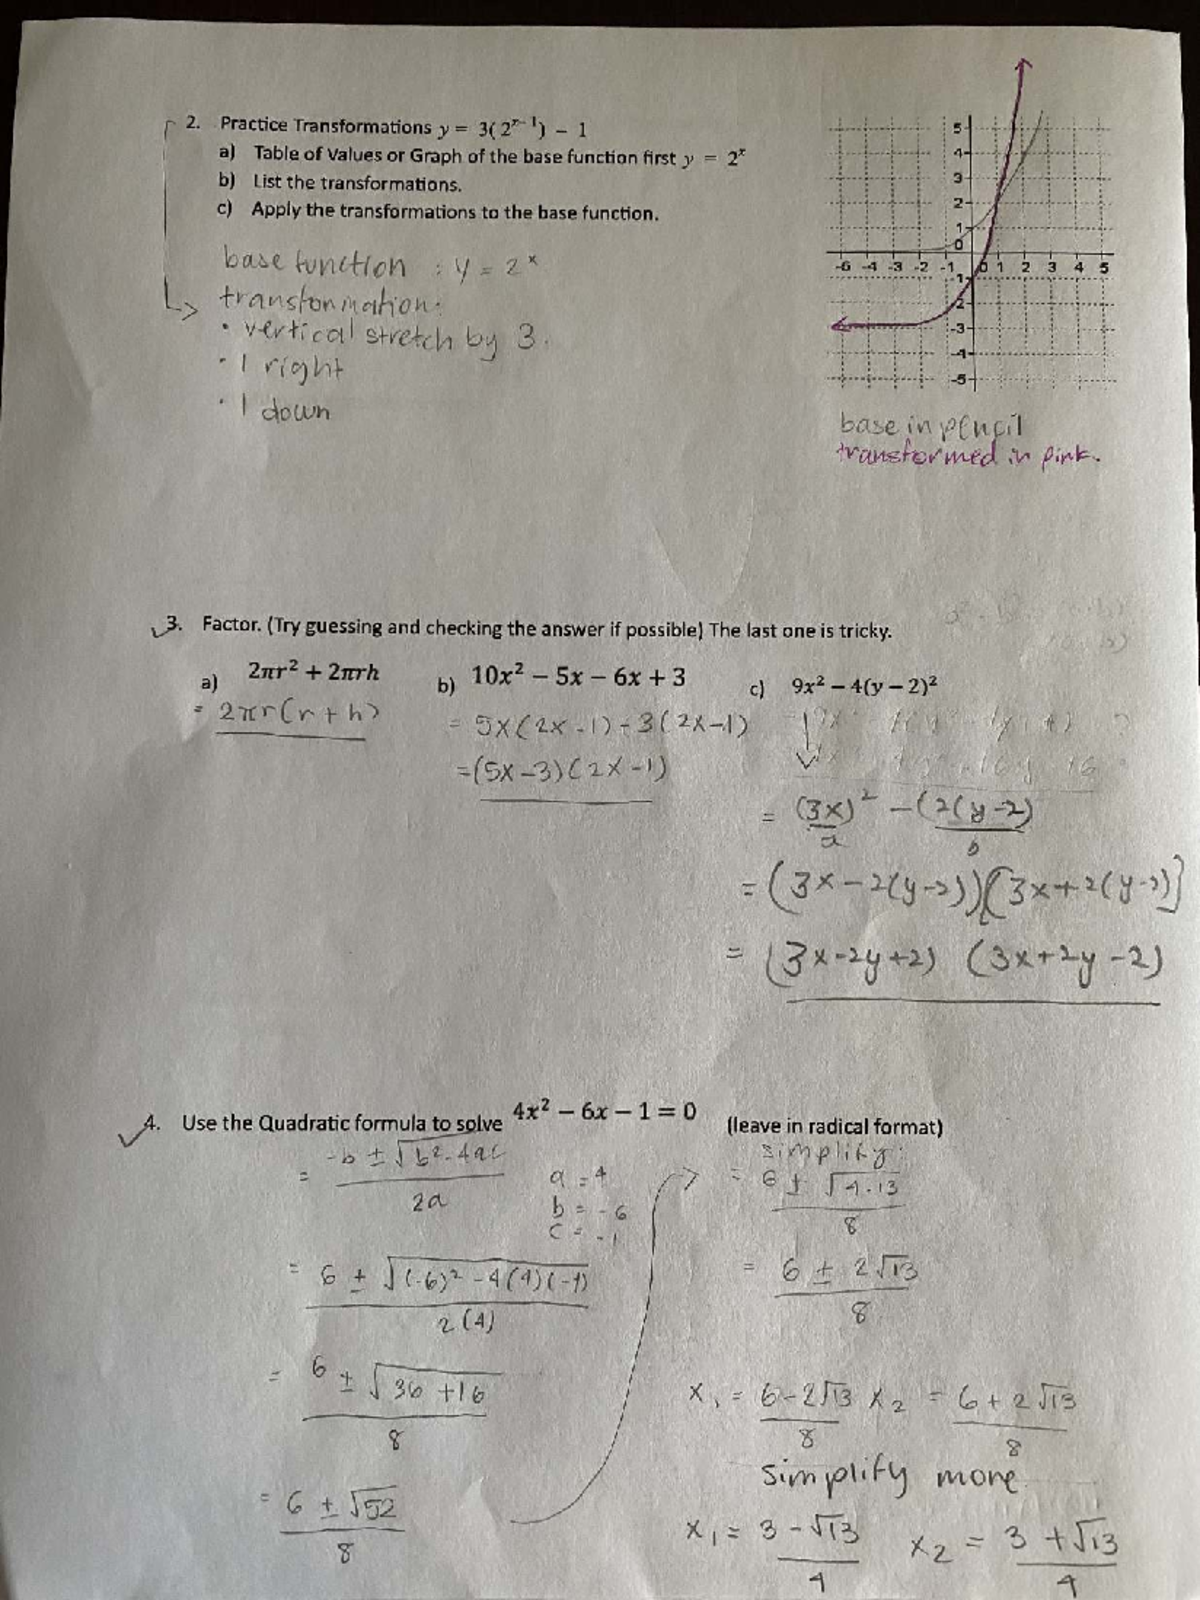 2. Practice Transformations y = 3(2^(x-1)) - 1
a) Table of Values or Graph of the base function first y = 2^x
b) List the transformations.
c) Apply the transformations to the base function.
base function : y = 2^x
transformation:
• vertical stretch by 3.
• 1 right
• 1 down
5
4
3
2
1
0
-6 -4 -3 -2 -1 0 1 2 3 4 5
-1
-2
-3
-4
-5
base in pencil
transformed in pink.
3. Factor. (Try guessing and checking the answer if possible) The last one is tricky.
a) 2πr² + 2πrh
= 2πr(r+h)
b) 10x² – 5x – 6x + 3
= 5x(2x-1)-3(2x-1)
=(5x-3)(2x-1)
c) 9x² – 4(y – 2)²
= (3x)² - (2(y-2)
a b
= (3x-2(y-2))(3x+2(y-2)]
= (3x-2y+2) (3x+2y-2)
4. Use the Quadratic formula to solve 4x² – 6x – 1 = 0 (leave in radical format)
= -b ± √b²-4ac
2a
a = 4
b = -6
c = -1
= 6 ± √(-6)² -4(4)(-1)
2(4)
= 6 ± √36 +16
8
= 6 ± √52
8
simplify:
= 6 ± √4·13
8
= 6 ± 2√13
8
x₁ = 6-2√13 x₂ = 6+2√13
8 8
simplify more
x₁ = 3-√13 x₂ = 3+√13
4 4